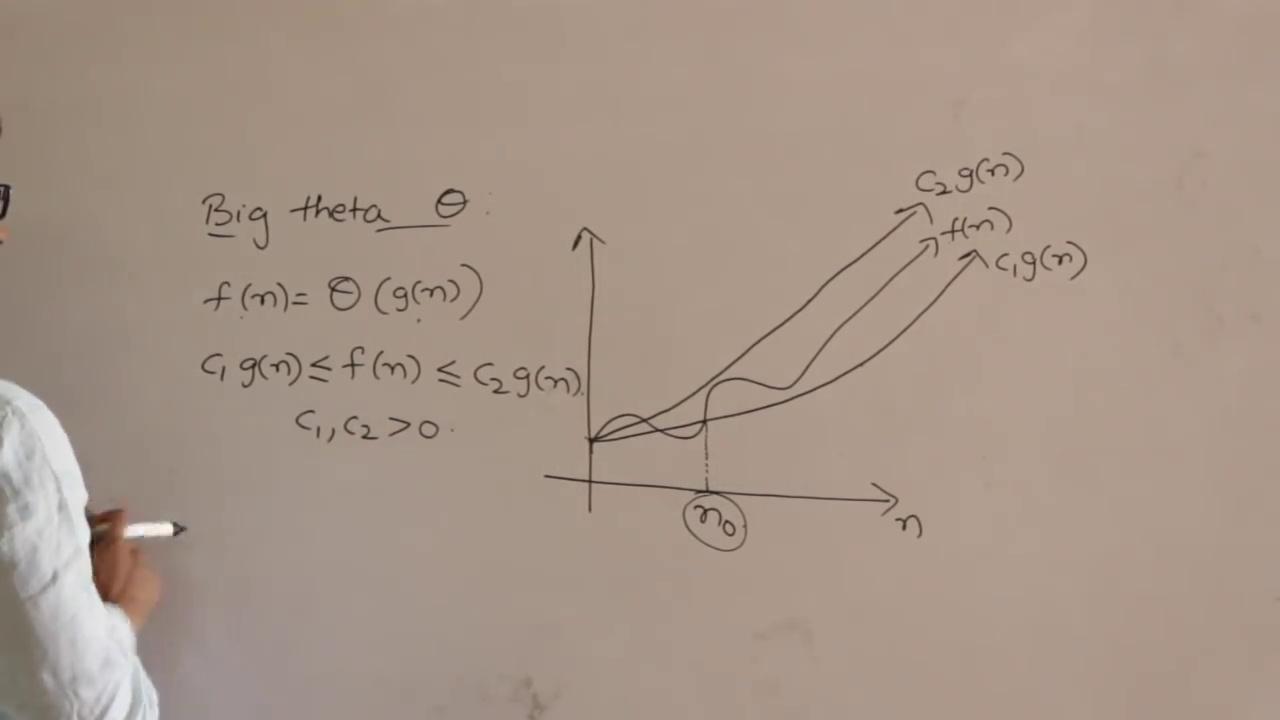 Big theta θ:
f(n) = θ (g(n))
c₁ g(n) ≤ f(n) ≤ c₂ g(n).
c₁, c₂ > 0.
c₂ g(n)
f(n)
c₁ g(n)
n₀
n